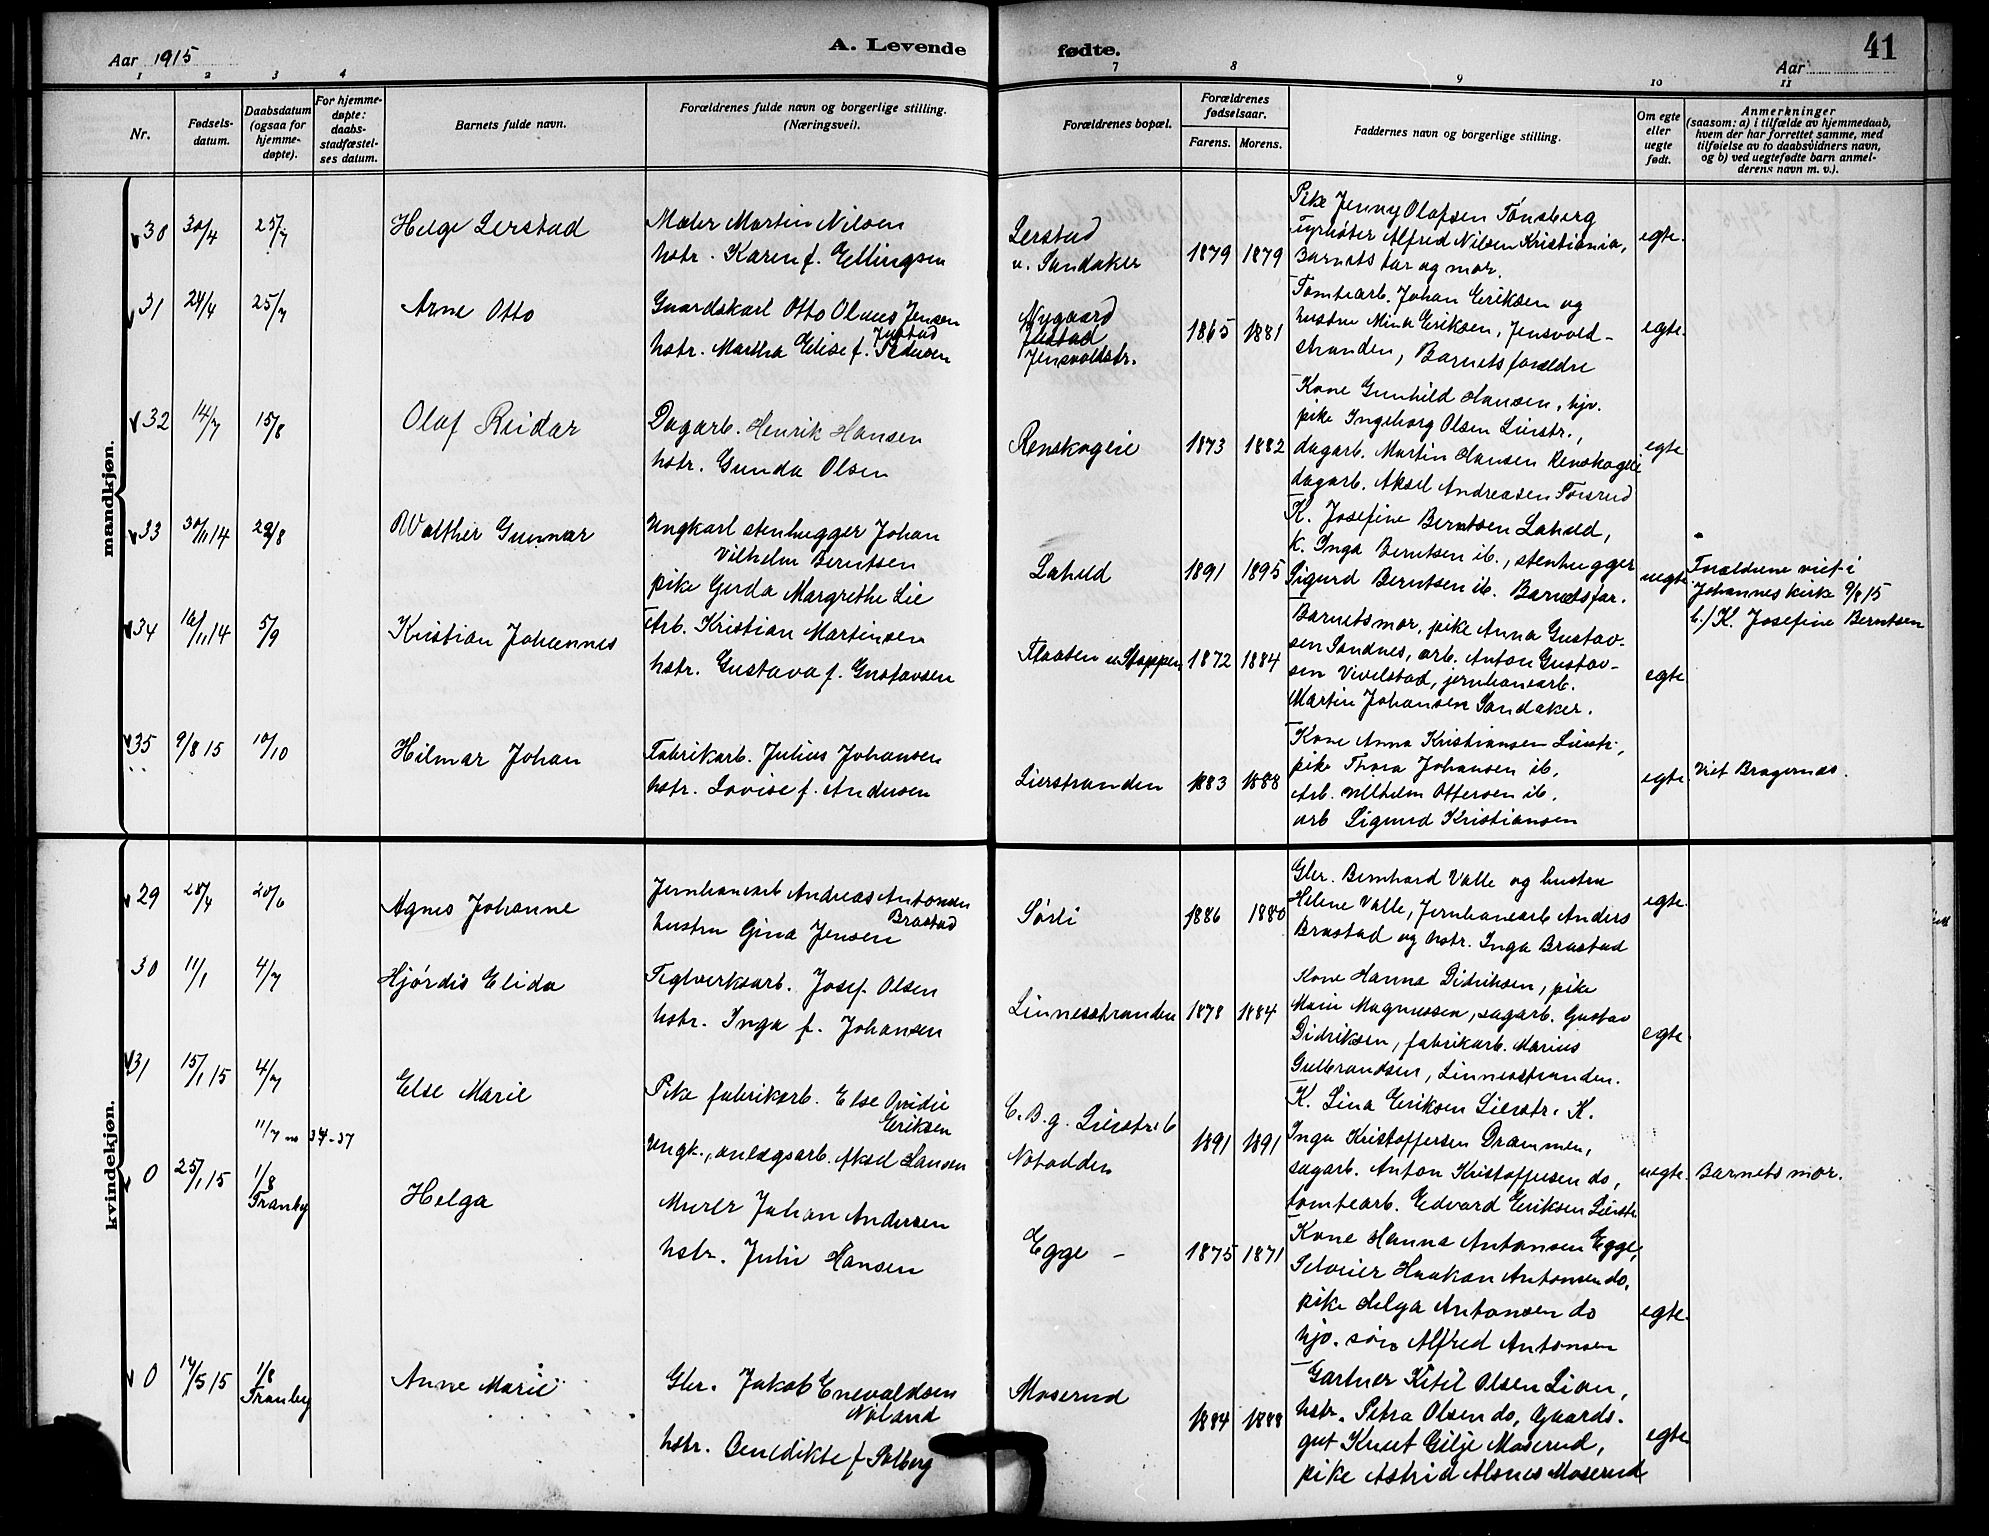 Aar 1915
A. Levende fødte.
41
Aar
1 2 3 4 7 8 9 10 11
Nr.
Fødsels-
datum.
Daabsdatum
(ogsaa for
hjemme-
døpte).
For hjemme-
døpte:
daabs-
stadfæstel-
ses datum.
Barnets fulde navn.
Forældrenes fulde navn og borgerlige stilling.
(Næringsvei).
Forældrenes bopæl.
Forældrenes
fødselsaar.
Farens. Morens.
Faddernes navn og borgerlige stilling.
Om egte
eller
uegte
født.
Anmerkninger
(saasom: a) i tilfælde av hjemmedaab,
hvem der har forrettet samme, med
tilføielse av to daabsvidners navn,
og b) ved uegtefødte barn anmel-
derens navn m. v.).
mandkjøn.
30 30/4 25/7 Helge Lerstad
Maler Martin Nilsen
hstr. Karen f. Ellingsen
Lerstad
v. Sandaker
1879 1879
Pike Jenny Olafsen Tønsberg
Fyrbøter Alfred Nilsen Kristiania,
Barnets far og mor.
egte.
31 24/4 25/7 Arne Otto
Gaardskarl Otto Olaus Jensen
Jystad
hstr. Martha Elise f. Pedersen
Nygaard
Jensvoldstr.
1865 1881
Tomtearb. Johan Eriksen og
hustru Mina Eriksen, Jensvold-
stranden, Barnets forældre
egte.
32 14/7 15/8 Olaf Reidar
Dagarb. Henrik Hansen
hstr. Gunda Olsen
Renskogeie
1873 1882
Kone Gunhild Hansen, hjv.
pike Ingeborg Olsen Lierstr.,
dagarb. Martin Hansen Renskogeie
dagarb. Aksel Andreasen Forsrud
egte
33 30/11 14 29/8 Walther Gunnar
Ungkarl stenhugger Johan
Vilhelm Berntsen
pike Gerda Margrethe Lie
Laheld
1891 1895
K. Josefine Berntsen Laheld,
K. Inga Berntsen ib., stenhugger
Sigurd Berntsen ib. Barnets far.
uegte
Forældrene viet i
Johannes kirk 9/8 15
K. Josefine Berntsen
34 16/11 14 5/9 Kristian Johannes
Arb. Kristian Martinsen
hstr. Gustava f. Gustavsen
Flaaten u. Stoppen
1872 1884
Barnets mor, pike Anna Gustav-
sen Sandnes, arb. Anton Gustav-
sen Vivelstad, jernbanearb.
Martin Johansen Sandaker.
egte
35 9/8 15 10/10 Hilmar Johan
Fabrikarb. Julius Johansen
hstr. Lovise f. Andersen
Lierstranden
1883 1888
Kone Anna Kristiansen Lierstr.,
pike Thora Johansen ib.
Arb. Wilhelm Ottersen ib.
arb Sigurd Kristiansen
egte.
Viet Bragernæs.
kvindekjøn.
29 28/4 20/6 Agnes Johanne
Jernbanearb Andreas Antonsen
Brastad
hustru Gina Jensen
Sørli
1886 1880
Gbr. Bernhard Valle og hustru
Helene Valle, Jernbanearb Anders
Brastad og hstr. Inga Brastad
egte.
30 11/1 4/7 Hjørdis Elida
Teglverksarb. Josef Olsen
hstr. Inga f. Johansen
Linnesstranden
1878 1884
Kone Hanna Didriksen, pike
Marie Magnussen, sagarb. Gustav
Didriksen, fabrikarb. Marius
Gulbrandsen, Linnesstranden.
egte.
31 15/1 15 4/7 Else Marie
11/7 no 34-37
Pike fabrikarb. Else Ovidie
Eriksen
Ungk., anlægsarb. Aksel Hansen
C. B. g. Lierstr.
Notodden
1891 1891
K. Lina Eriksen Lierstr. K.
Inga Kristoffersen Drammen,
sagarb. Anton Kristoffersen do,
tomtearb. Edvard Eriksen Lierstr
uegte.
Barnets mor.
0 25/1 15 1/8
Tranby
Helga
Murer Johan Andersen
hstr. Julie Hansen
Egge -
1875 1871
Kone Hanna Antonsen Egge,
Selveier Haakon Antonsen do,
pike Helga Antonsen do
hjv. søn Alfred Antonsen
egte.
0 14/5 15 1/8
Tranby
Anne Marie
Gbr. Jakob Enevaldsen
Nøland
hstr. Benedikte f Solberg
Moserud
1884 1888
Gartner Ketil Olsen Lian,
hstr. Petra Olsen do, Gaards-
gut Knut Gilje Moserud,
pike Astrid Alsnes Moserud
egte